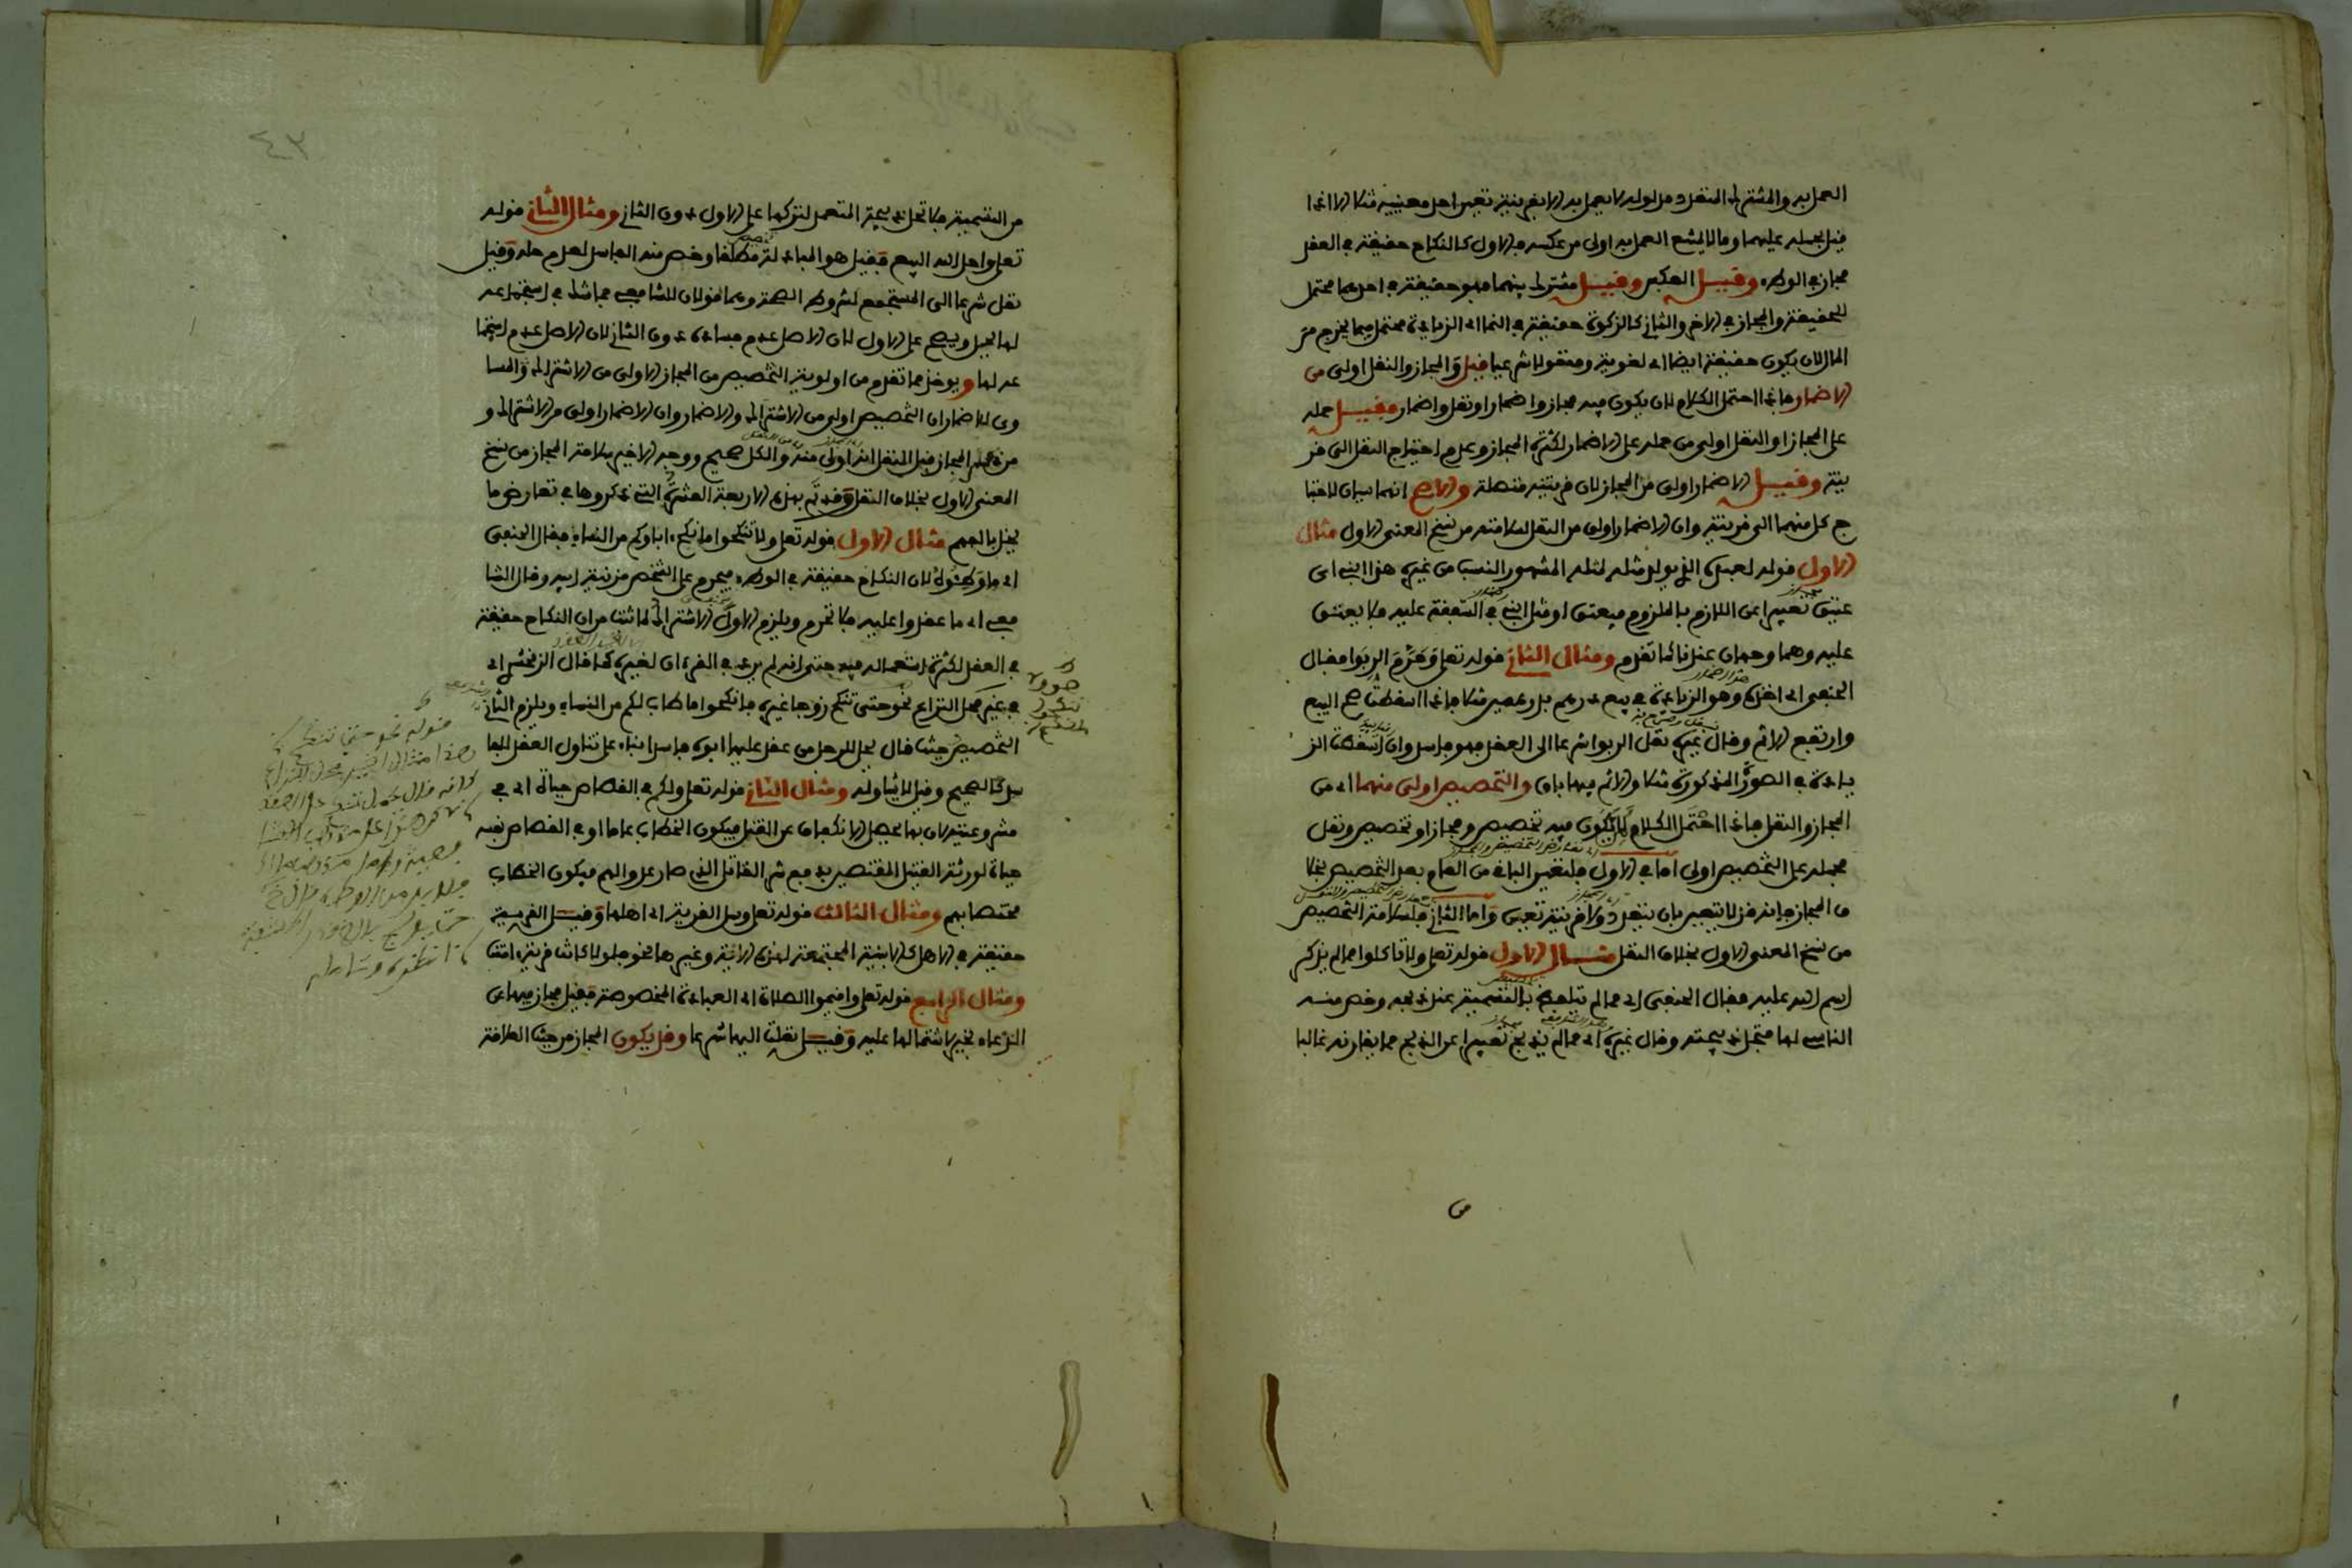 العمل به والمشترك المتعدد مدلوله لا يعمل به الا بقرينة تعين احد معنييه مثلا الا اذا
قيل بحمله عليهما وما لا يمتنع العمل به اولى من عكسه فالاول كالنكاح حقيقة في العقد
مجاز في الوطء وقيل العكس وقيل مشترك بينهما فهو حقيقة في احدهما محتمل
للحقيقة والمجاز في الاخر والثاني كالزكوة حقيقة في النما اي الزيادة محتمل فيما يخرج من
المال لان يكون حقيقة ايضا اي لغوية ومنقولا شرعيا قيل والمجاز والنقل اولى من
الاضمار فاذا احتمل الكلام لان يكون فيه مجاز واضمار او نقل واضمار فقيل حمله
على المجاز او النقل اولى من حمله على الاضمار لكثرة المجاز وعدم احتياج النقل الى قر
ينة وقيل الاضمار اولى من المجاز لان قرينته متصلة والاصح انهما سيان لاحتيا
ج كل منهما الى قرينة وان الاضمار اولى من النقل لسلامته من نسخ المعنى الاول مثال
الاول قوله لعبده الذي يولد مثله لمثله المشهور النسب من غيره هذا ابني اي
عتيق تعبيرا عن اللازم بالملزوم فيعتق او مثل ابني في الشفقة عليه فلا يعتق
عليه وهما وجهان عندنا كما تقدم ومثال الثاني قوله تعلى وحرم الربوا فقال
الحنفي اي اخذه وهو الزيادة في بيع درهم بدرهمين مثلا فاذا اسقطت صح البيع
وارتفع الاثم وقال غيره نقل الربوا شرعا الى العقد فهو فاسد وان اسقطت الز
يادة في الصورة المذكورة مثلا والاثم فيها باق والتخصيص اولى منهما اي من
المجاز والنقل فاذا احتمل الكلام لان يكون فيه تخصيص ومجاز او تخصيص ونقل
فحمله على التخصيص اولى اما في الاول فلتعين الباقي من العام بعد التخصيص بخلا
ف المجاز فانه قد لا يتعين بان يتعدد ولا قرينة تعين واما الثاني فلسلامة التخصيص
من نسخ المعنى الاول بخلاف النقل مثال الاول قوله تعلى ولا تاكلوا مما لم يذكر
اسم الله عليه فقال الحنفي اي مما لم يتلفظ بالتسمية عند ذبحه وخص منه
الناسي لها فتحل ذبيحته وقال غيره اي مما لم يذبح تعبيرا عن الذبح مما يقارنه غالبا
٤٣
من التسمية فلا تحل ذبيحة المتعمد لتركها على الاول دون الثاني ومثال الثاني قوله
تعلى واحل الله البيع فقيل هو المبادلة مطلقا وخص منه الفاسد لعدم حله وقيل
نقل شرعا الى المستجمع لشروط الصحة وهما قولان للشافعي فما شك في استجماعه
لها يحل ويصح على الاول لان الاصل عدم فساده دون الثاني لان الاصل عدم استجما
عه لها ويؤخذ مما تقدم من اولوية التخصيص من المجاز الاولى من الاشتراك والمسا
وي للاضمار ان التخصيص اولى من الاشتراك والاضمار وان الاضمار اولى من الاشتراك و
من ان المجاز قبل النقل انه اولى منه والكل صحيح ووجه الاخير سلامة المجاز من نسخ
المعنى الاول بخلاف النقل وقد تم بهذه الاربعة العشرة التي ذكروها في تعارض ما
يخل بالفهم مثال الاول قوله تعلى ولا تنكحوا ما نكح اباوكم من النساء فقال الحنفي
اي ما وطئوه لان النكاح حقيقة في الوطء فيحرم على الشخص مزنية ابيه وقال الشا
فعي اي ما عقدوا عليه فلا تحرم ويلزم الاول الاشتراك لما ثبت من ان النكاح حقيقة
في العقد لكثرة استعماله فيه حتى انه لم يرد في القرءان لغيره كما قال الزمخشري اي
في غير محل النزاع نحو حتى تنكح زوجا غيره فانكحوا ما طاب لكم من النساء ويلزم الثاني
التخصيص حيث قال يحل للرجل من عقد عليها ابوه فاسدا بناء على تناول العقد للفا
سد كالصحيح وقيل لا يتناوله ومثال الثاني قوله تعلى ولكم في القصاص حياة اي في
مشروعيته لان بها يحصل الانكفاف عن القتل فيكون الخطاب عاما او في القصاص نفسه
حياة لورثة القتيل المقتصين بدفع شر القاتل الذي صار عدوا لهم فيكون الخطاب
مختصا بهم ومثال الثالث قوله تعلى وسل القرية اي اهلها وقيل القرية
حقيقة في الاهل كالابنية المجتمعة لهذه الاية وغيرها نحو فلولا كانت قرية امنت
ومثال الرابع قوله تعلى واقيموا الصلاة اي العبادة المخصوصة فقيل مجاز فيها عن
الدعاء بخير لاشتمالها عليه وقيل نقلت اليها شرعا وقد يكون المجاز من حيث العلاقة